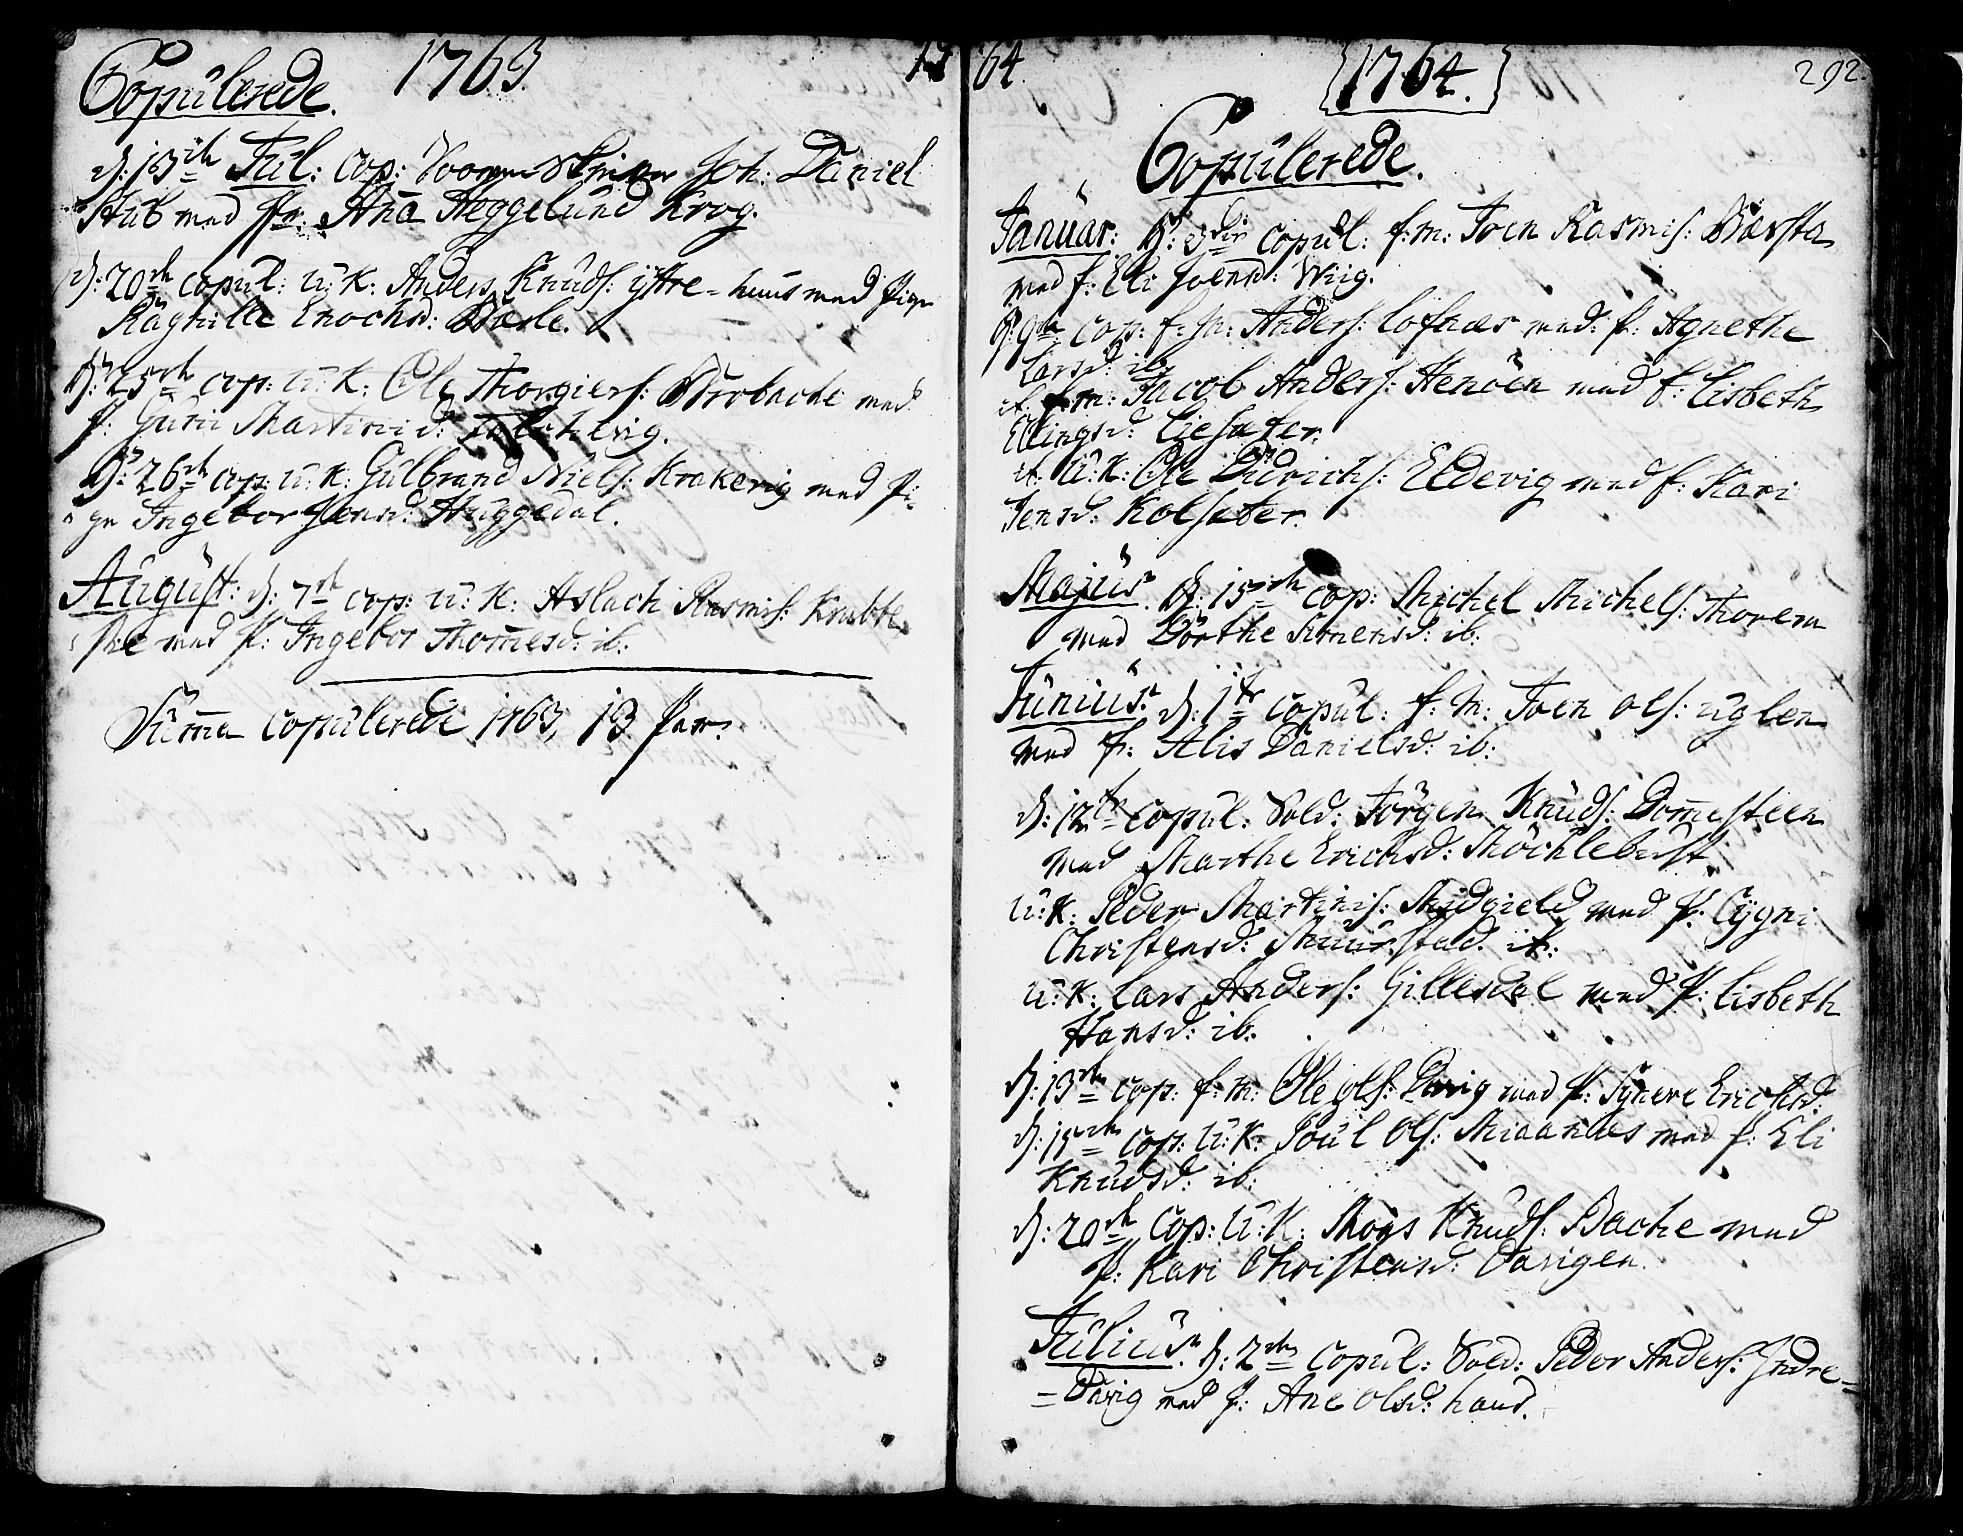 Copulerede. 1763. 17
d: 13de Jul: Cop: Soorenskriver Joh: Daniel
Stub med Jfr: Aña Heggelund Krog.
d: 20de copul: U: K: Anders Knuds: yttre-huus med Pige
Raghille Enochsd: Dærle.
d: 25de cop: U: K: Ole Thorgiers: Brobache med
P: Guri Martinid:
d: 26de cop: U: K: Gulbrand Niels: Krakevig med Pi-
ge Ingebor Jensd: Huggedal.
August: d: 7de cop: U: K: Aslach Rasmis: Knabbe
med P: Ingebor Thom̄esd: ib:
Sum̄a copulerede 1763, 13 Par.
64 1764. 292.
Copulerede.
Januar: d: 3die copul: f: m: Joen Rasmis: Bærsta
med f: Eli Joensd: Wiig.
d: 9de cop: f: m: Anders: Løfnæs med P: Agnethe
Larsd: ib.
it. f: m: Jacob Anders: Henøen med f: Lisbeth
Ellingsd: Liesæter.
it. U: K: Ole Didrichs: Eldevig med f: Kari
Jensd: Kolsæter.
Majus. d: 15de cop: Michel Michels: Thorem
med Dorthe Simensd: ib:
Junius: d: 1te copul: f: m: Joen Ols: Uglen
med P: Alis Danielsd: ib:
d: 12te copul: Sold: Jørgen Knuds: Dom̄esteen
med Marthe Erichsd: Møchlebust
U: K: Peder Martinis: Midgield med P: Cygni
Christensd: Muurstad. it:
U: K: Lars Anders: Gillesdal med P: Lisbeth
Hansd: ib:
d: 13de cop: f: m: Ole Ols: Davig med P: Syneve Erichsd:
d: 15de cop: U: K: Poul Ols: Miaanæs med f: Eli
Knudsd: ib:
d: 20de Cop: U: K: Mons Knuds: Bache med
P: Kari Christensd: Davigen.
Julius. d: 2den copul: Sold: Peder Anders: Indre-
-Davig med P: Ane Olsd: haus.